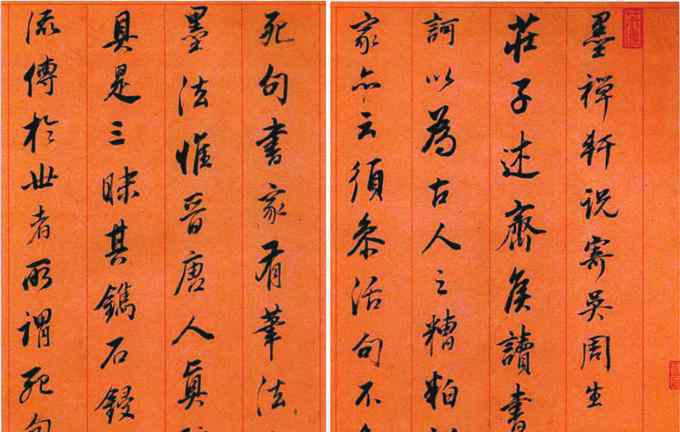 墨禅軒説寄吳周生
莊子述齊侯讀書
訶以為古人之糟粕
家亦云須參活句不
死句書家有筆法
墨法惟晉唐人真
具是三昧其鐫石鋟
流傳於世者所謂死句